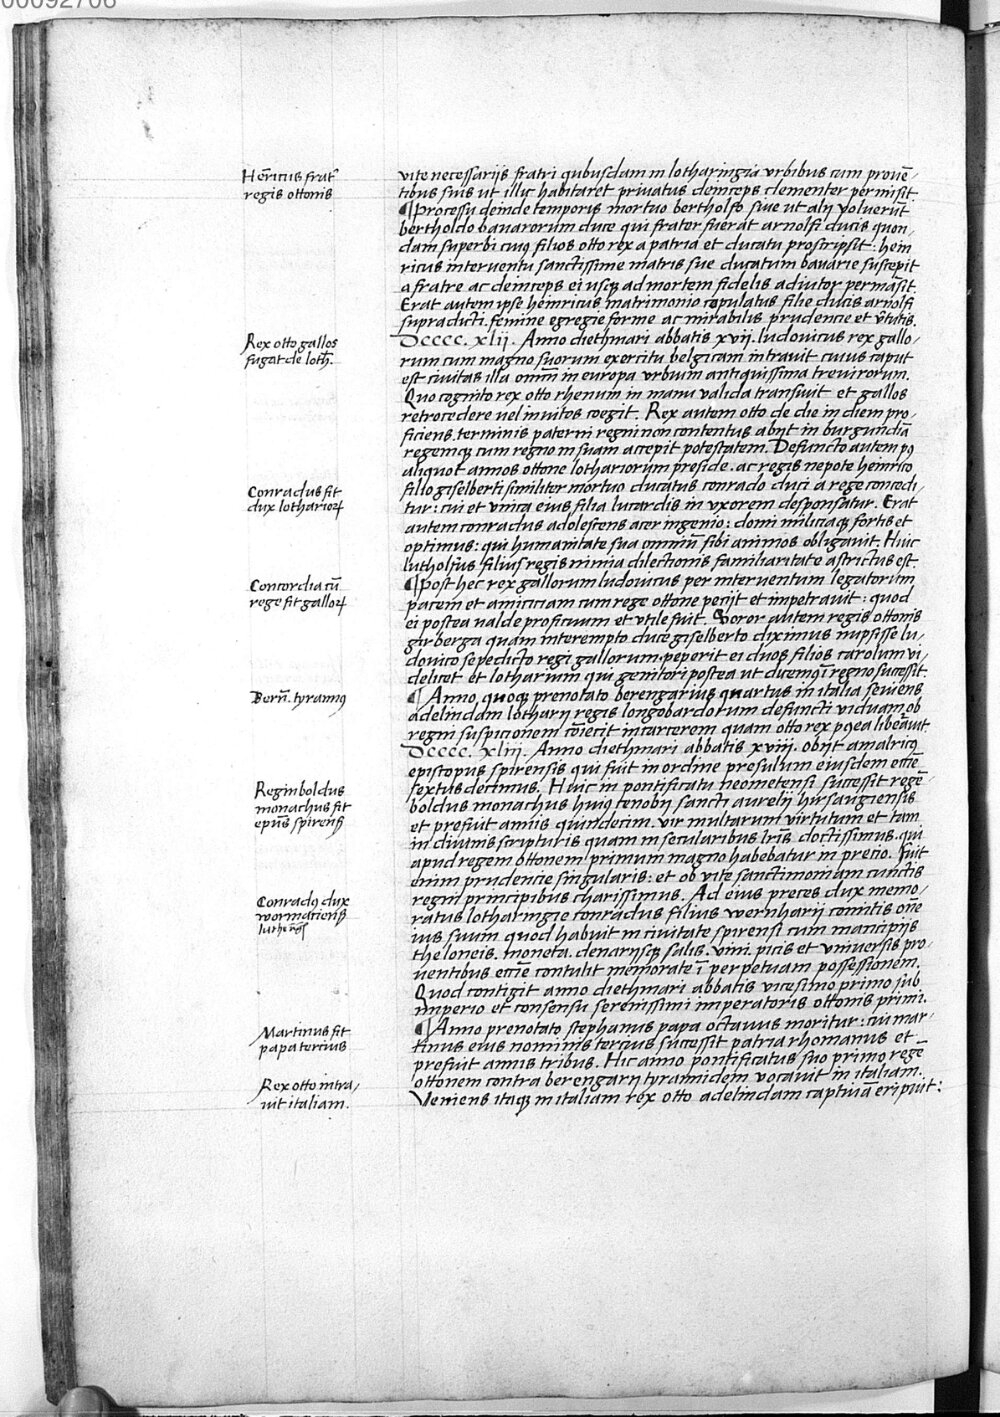 00092706
Hēricus frat̄
regis ottonis
vite necessarijs fratri qubusdam in lotharingia vrbibus cum prouē-
tibus suis ut illic habitaret priuatus deinceps clementer permisit.
¶Processu deinde temporis mortuo bertholfo siue ut alij voluerūt
bertholdo bauarorum duce qui frater fuerat arnolfi ducis quon/
dam superbi cuiꝰ filios otto rex a patria et ducatu proscripsit: hein
ricus interuentu sanctissime matris sue ducatum bauarie suscepit
a fratre ac deinceps ei usqꝫ ad mortem fidelis adiutor permāsit.
Erat autem ipse heinricus matrimonio copulatus filie ducis arnolfi
supradicti. femine egregie forme ac mirabilis prudencie et v̄tutis.
Rex otto gallos
fugat de loth̄.
Dcccc. xlij. Anno diethmari abbatis xvij. ludouicus rex gallo/
rum cum magno suorum exercitu belgicam intrauit cuius caput
est ciuitas illa omniū in europa vrbium antiquissima treuirorum.
Quo cognito rex otto rhenum in manu valida transiuit et gallos
retrocedere uel inuitos coegit. Rex autem otto de die in diem pro/
ficiens. terminis paterni regni non contentus abijt in burgundiā
regemqꝫ cum regno in suam accepit potestatem. Defuncto autem pꝰ
aliquot annos ottone lothariorum preside. ac regis nepote heinrico
Conradus fit
dux lothariorꝝ
filio giselberti similiter mortuo ducatus conrado duci a rege concedi/
tur: cui et vnica eius filia lucardis in vxorem desponsatur. Erat
autem conradus adolescens acer ingenio: domi miliciaqꝫ fortis et
optimus: qui humanitate sua omniū sibi animos obligauit. Huic
lutholfus filius regis nimia dilectionis familiaritate astrictus est.
Concordia cū
rege fit gallorꝝ
¶Post hec rex gallorum ludouicus per interuentum legatorum
pacem et amiciciam cum rege ottone pecijt et impetrauit: quod
ei postea ualde proficuum et vtile fuit. Soror autem regis ottonis
girberga quam interempto duce giselberto diximus nupsisse lu/
douico sepedicto regi gallorum. peperit ei duos filios carolum vi/
delicet et lotharium qui genitori postea ut dicemus ī regno successit.
Bern̄. tyrannꝰ
¶ Anno quoqꝫ prenotato berengarius quartus in italia seuiens
adelindam lotharij regis longobardorum defuncti viduam. ob
regni suspicionem cōiecit in carcerem quam otto rex pꝰea libeᷓauit.
Dcccc. xliij. Anno diethmari abbatis xviij. obijt amalricꝰ
episcopus spirensis qui fuit in ordine presulum eiusdem eccīe
Reginboldus
monachus fit
ep̄us spirens̄
sextus decimus. Huic in pontificatu neometensi successit regē
boldus monachus huiꝰ cenobij sancti aurelij hirsaugiensis
et prefuit annis quindecim. vir multarum virtutum et tam
in diuinis scripturis quam in secularibus lr̄is doctissimus. qui
apud regem ottonem primum magno habebatur in precio. Fuit
enim prudencie singularis: et ob vite sanctimoniam cunctis
regni principibus charissimus. Ad eius preces dux memo/
Conradꝰ dux
wormaciens̄
ratus lotharingie conradus filius wernharij comitis om̄e
ius suum quod habuit in ciuitate spirensi cum mancipijs
theloneis. moneta. denarijsqꝫ salis. vini. picis et vniuersis pro-
uentibus eccīe contulit memorate ī perpetuam possessionem.
Quod contigit anno diethmari abbatis vicesimo primo sub
imperio et consensu serenissimi imperatoris ottonis primi.
Martinus fit
papa tercius
¶ Anno prenotato stephanus papa octauus moritur: cui mar/
tinus eius nominis tercius successit patria rhomanus et
prefuit annis tribus. Hic anno pontificatus suo primo regē
Rex otto intra/
uit italiam.
ottonem contra berengarij tyrannidem vocauit in italiam.
Veniens itaqꝫ in italiam rex otto adelindam captiuā eripuit: